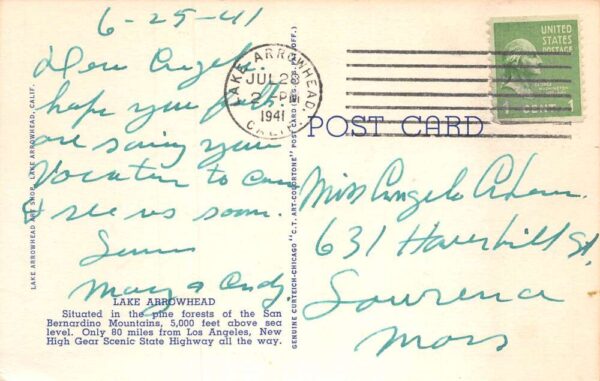 6-25-41
Dear Angela.
hope you folks
are saving your
Vacation to come
& see us soon.
Mary & Andy.
LAKE ARROWHEAD
Situated in the pine forests of the San
Bernardino Mountains, 5,000 feet above sea
level. Only 80 miles from Los Angeles, New
High Gear Scenic State Highway all the way.
LAKE ARROWHEAD ART SHOP, LAKE ARROWHEAD, CALIF.
GENUINE CURTEICH-CHICAGO "C.T. ART-COLORTONE" POST CARD (REG. U.S. PAT. OFF.)
LAKE ARROWHEAD,
JUL 28
2 - PM
1941
CALIF.
UNITED
STATES
POSTAGE
1 CENT 1
POST CARD
Miss Angela
631 Haverhill St,
Lawrence
Mass